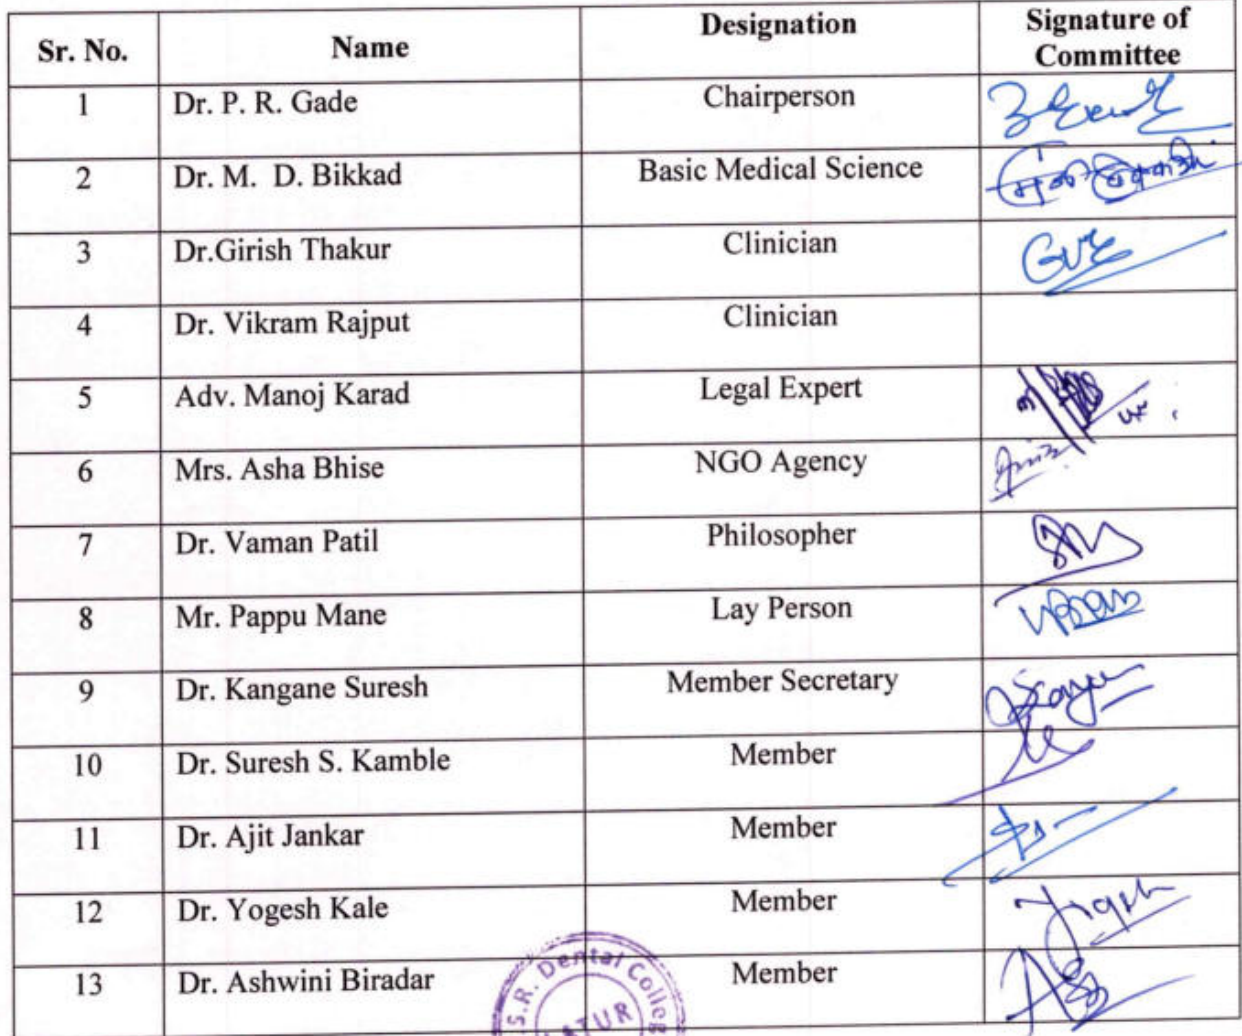 Sr. No. Name Designation Signature of
Committee
1 Dr. P. R. Gade Chairperson
2 Dr. M. D. Bikkad Basic Medical Science
3 Dr.Girish Thakur Clinician
4 Dr. Vikram Rajput Clinician
5 Adv. Manoj Karad Legal Expert
6 Mrs. Asha Bhise NGO Agency
7 Dr. Vaman Patil Philosopher
8 Mr. Pappu Mane Lay Person
9 Dr. Kangane Suresh Member Secretary
10 Dr. Suresh S. Kamble Member
11 Dr. Ajit Jankar Member
12 Dr. Yogesh Kale Member
13 Dr. Ashwini Biradar Member
S.R. Dental College